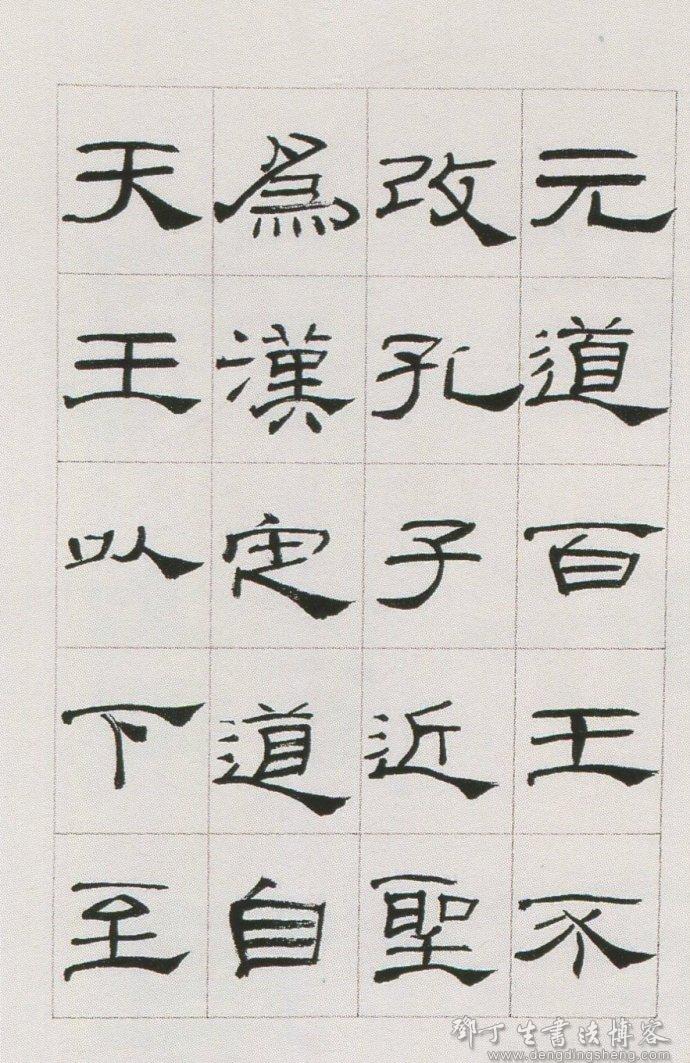 元道百王不
改孔子近聖
為漢定道自
天王以下至
鄧丁生書法博客
www.dengdingsheng.com